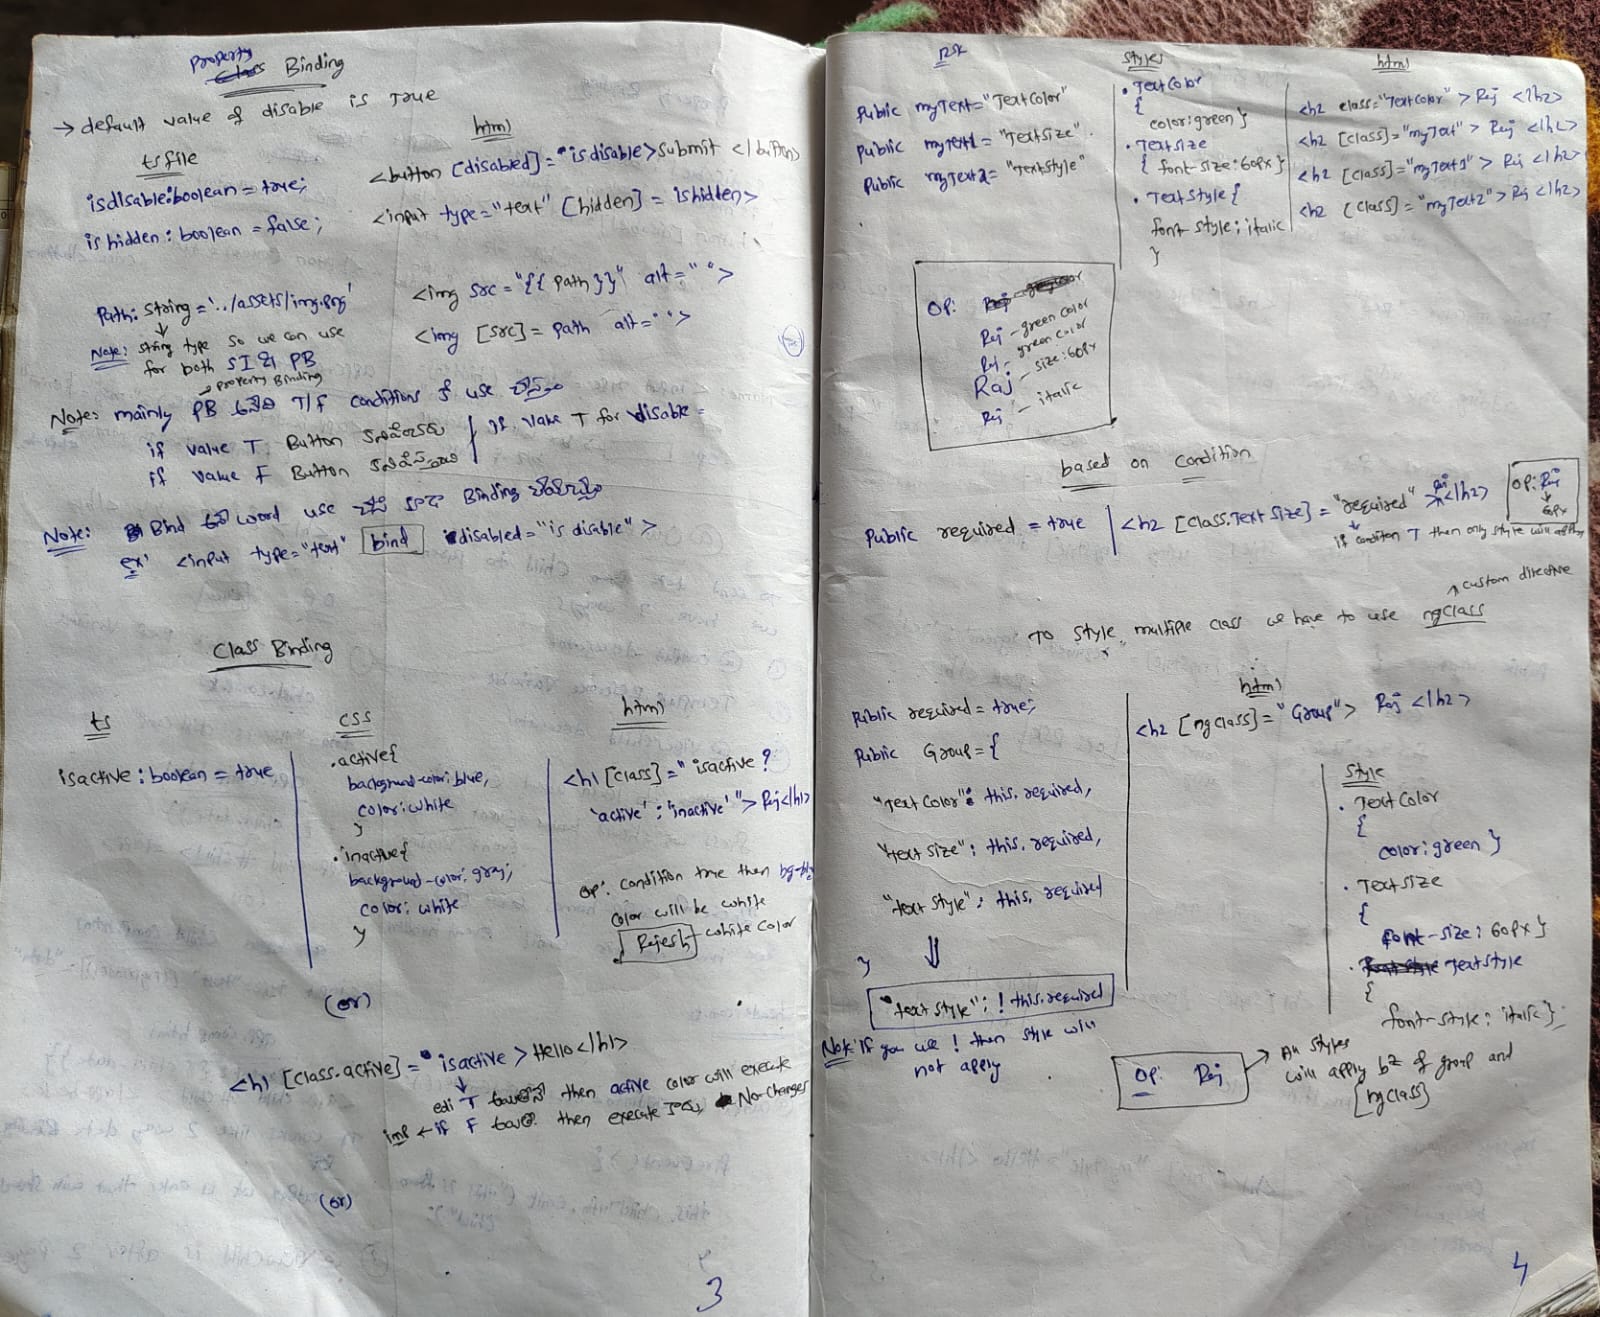 Property
Binding
→ default value of disable is True
ts file
html
isdisable:boolean = true;
<button [disabled]="isdisable>submit </button>
is hidden : boolean = false;
<input type="text" [hidden] = ishidden>
Path: string = '../assets/img.png'
<img src = "{{ Path }}" alt=" ">
<img [src] = path alt=" ">
Note: string type so we can use
for both SI & PB
→ Property Binding
Note: mainly PB అనేది T/F conditions కి use చేస్తాం
if value T Button కనిపించదు | if value T for disable =
if value F Button కనిపిస్తుంది
Note: Bind అనే word use చేసి కూడా Binding చేయొచ్చు
ex: <input type="text" bind disabled="is disable" >
Class Binding
ts
css
html
isactive : boolean = true
.active{
background-color: blue,
color: white
}
.inactive{
background-color: gray;
color: white
}
<h1 [class]="isactive ?
'active' : 'inactive'"> Raj</h1>
op: condition true then
color will be white
Rajesh → white color
(or)
<h1 [class.active] = "isactive > Hello</h1>
edi T then active color will execute
imp ← if F then execute No-changes
(or)
3
Public myText = "TextColor"
Public myText1 = "TextSize".
Public myText2 = "TextStyle"
Styles
. TextColor
{
color: green }
. TextSize
{ font-size: 60px }
. TextStyle {
font-style: italic
}
html
<h2 class="TextColor" > Raj </h2>
<h2 [class]="myText" > Raj </h2>
<h2 [class]="myText1" > Raj </h2>
<h2 [class]="myText2" > Raj </h2>
OP:
Raj - green color
Raj - green color
Raj - size: 60px
Raj - italic
based on Condition
Public required = true | <h2 [class.TextSize] = "required" > Raj </h2>
OP: Raj
↓
60px
if conditon T then only style will apply
↗ custom directive
To style multiple class we have to use ngclass
Public required = true;
Public Group = {
"Text Color": this.required,
"text size": this.required,
"text style": this.required
}
"text style": ! this.required
Note: If you use ! then style will
not apply
html
<h2 [ngclass] = "Group"> Raj </h2>
Style
. TextColor
{
color: green }
. TextSize
{
font-size: 60px }
. TextStyle
{
font-style: italic };
OP: Raj
→ All styles
will apply bz of group and
[ngclass]
4